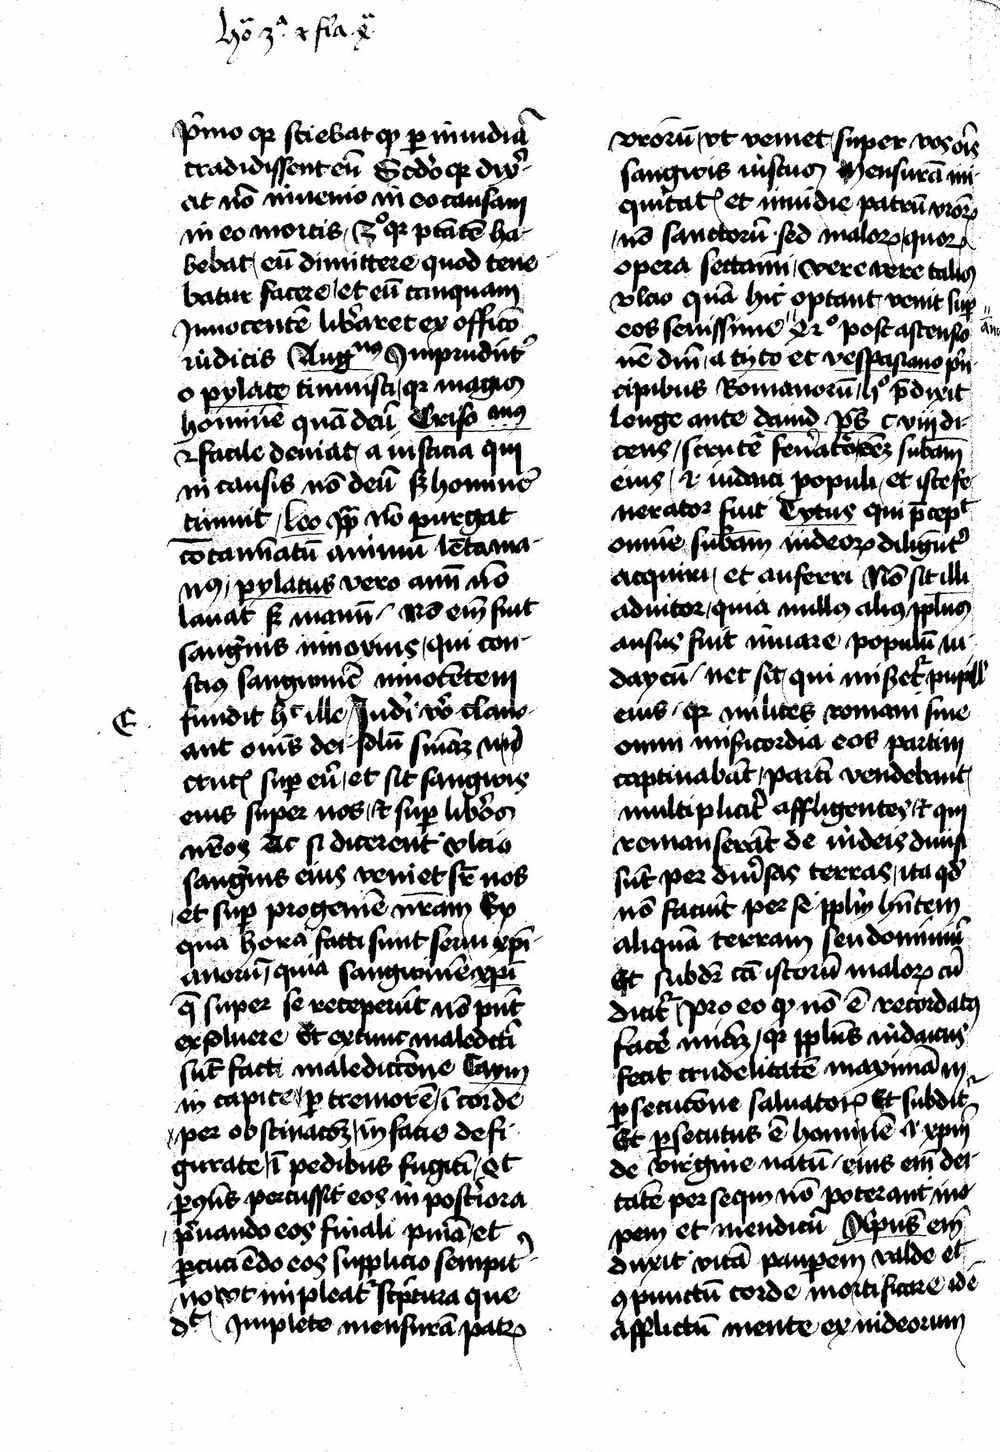 hō 3ᵃ et fīa x̄
p̄mo qr sciebat qp per inuidiā
tradidissent eū Scdo qr dix̄
it nō inuenio in eo causam
in eo mortis 3ᵒ qr ptātē ha
bebat eū dimittere quod tene
batur facere et eū tanquam
Innocentē libāret ex officō
iudicis Augᵘˢ Imprudūt
o pylate timuisti qr magis
hominē quā deū Criso mus
facile deuiat a iusticia qui
in causis nō deū s3 hominē
timuit leo pp̄ nō purgat
cōtaminatū animū lēta ma
nus pylatus vero aīm nō
lauat s3 manū nō eīm fuit
sangīnis innoxius qui con
scius sanguinē innocētem
fundit hᶜ ille Iudī vō clama
C
ant ouīs dei solū suā3
crucē sup eū et sit sanguis
eius super nos et sup libōs
nrōs Ac si dicerent vlcio
sangīnis eius veniet sr̄ nos
et sup progeniē nrām Ex
qua hora facti sunt serui xp̄i
anorū quia sanguinē xp̄i
q̄ super se receperūt nō pn̄t
exsoluere Et ex tunc maledicti
sūt facti maledictōne Caym
in capite per tremorē ī corde
per obstinacōē in facie defi
gurate ī pedibus fugitī Et
percussit eos in postīora
p̄uando eos finali et
percuciēdo eos supplicio sempit
no vt impleat scrīptura que
dᵗ Implete mensurā patrō
vrōrū vt veniet super vos oīs
sanguis iustus Mensurā ini
quitatē et inuidie patrū vrōrō
nō sanctorū sed malorō quorō
opera sectami vere vere talis
vlcio quā hic optant venit sup
eos seuissime Qr̄ᵒ post ascensio
nē dn̄i a tyto et vespasiano prin
cipibus Romanorū hᵒ p̄dixit
longe ante dauid p̄s c viij di
cens scrutē fenātor oēm subāam
eius et iudaici populi et iste fe
nerator fuit Tytus qui p̄cepᵗ
omnē subāam iudeorō diligūt̄
acquiri et auferri Nō sit illi
adiutor quia nullus alius ppl̄us
ausus fuit iuuare populū iu
daycū nec sit qui misēet pupill
eius qr milites romani sine
omni misicordia eos partim
captiuabāt partī vendebant
multiplicitē affligentes et qui
remanserāt de iudeis diuisi
sūt per diuīsas terras ita qd
nō faciūt per se ppl̄m hn̄tem
aliquā terram seu dominiū
Et subdr̄ cā istorū malorō cū
dicit̄ pro eo qp nō ē recordatus
facē mia3 qr ppl̄us iudaicus
fecit crudelitatē maximā in
psecutōne saluatorō Et subdit̄
Et psecutus ē hominē et xp̄m
de virgine natū eius eīm dei
tatē persequi nō poterant ino
pem et mendicū Xp̄us eīm
duxit vitā paupem valde et
9punctū corde mortificare idē
afflictū mente ex iudeorum